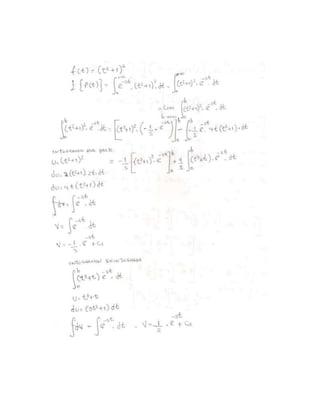 f(t) = (t²+1)²
L{f(t)} = ∫₀^{+∞} e^{-st}.(t²+1)².dt = ∫₀^{+∞} (t²+1)².e^{-st}.dt
= Lim b→+∞ ∫₀^b (t²+1)².e^{-st}.dt
∫₀^b (t²+1)².e^{-st}.dt = [(t²+1)².(-1/s.e^{-st})]₀^b - ∫₀^b -1/s.e^{-st}.4t(t²+1).dt
u=(t²+1)² = -1/s[(t²+1)².e^{-st}]₀^b + 4/s ∫₀^b (t³+t).e^{-st}.dt
du=2(t²+1).2t.dt
du=4t(t²+1)dt
∫dv=∫e^{-st}.dt
V=∫e^{-st}.dt
V=-1/s.e^{-st}+C₁
∫₀^b (t³+t)e^{-st}.dt
u=t³+t
du=(3t²+1)dt
∫dv=∫e^{-st}.dt . V=-1/s.e^{-st}+C₂